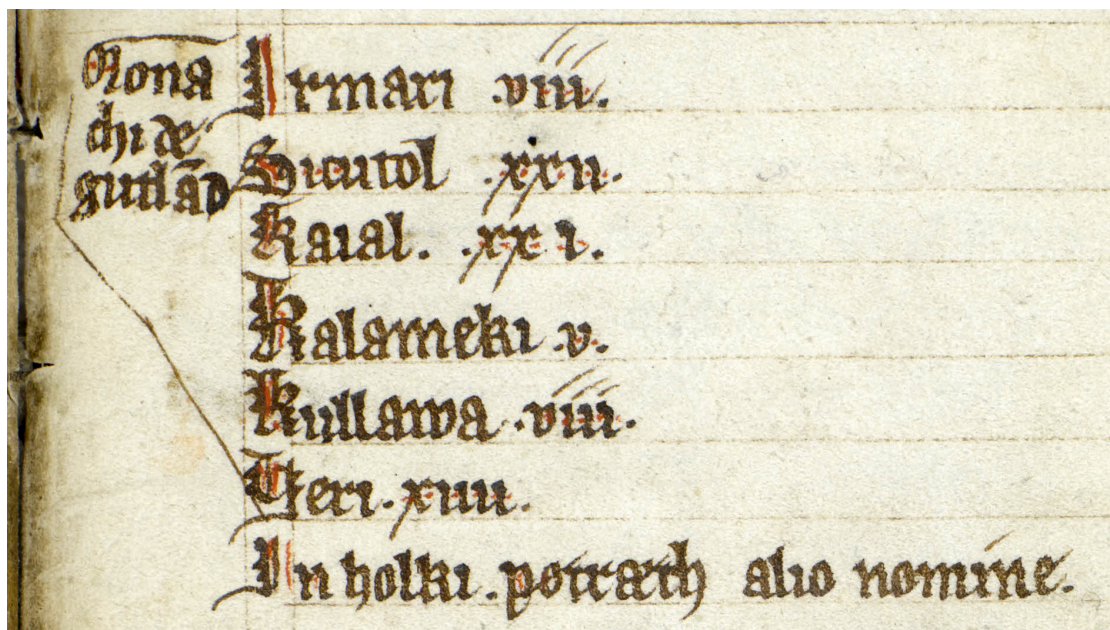 Mona
chi de
gutlād
Irmari .viii.
Sicutōl .xxii.
Kaial. .xxi.
Kalameki .v.
Kullawa .viii.
Teri .xiiii.
In holki .potræth alio nomine.